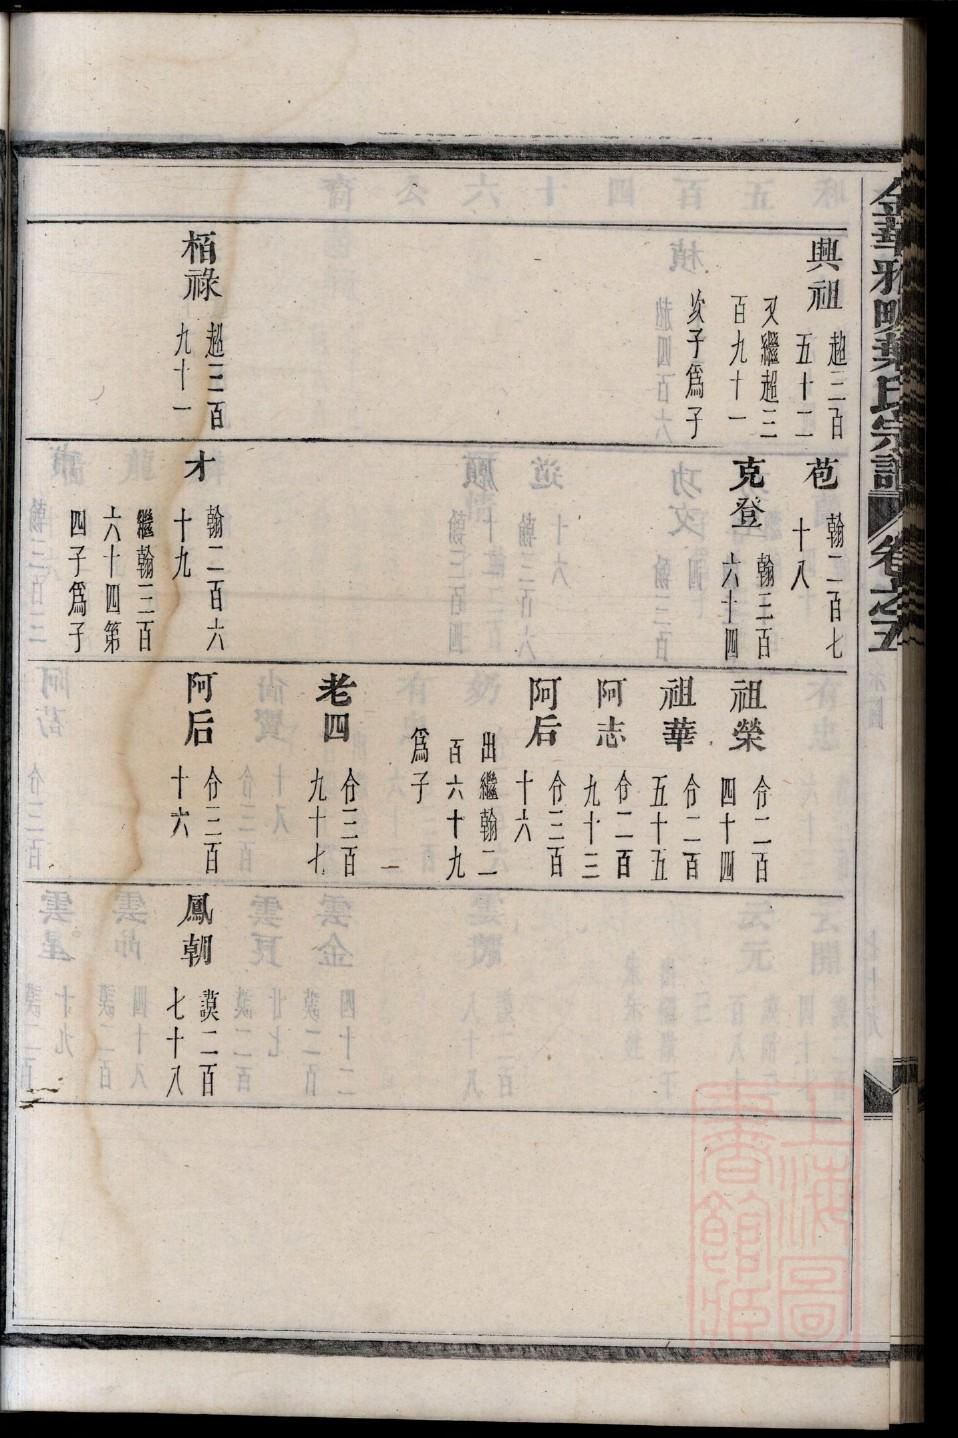 金華雅畈葉氏宗譜 卷之五
興祖
趙三百
五十二
又繼超三
百九十一
次子爲子
栢祿
超三百
九十一
苞
翰二百七
十八
克登
翰三百
六十四
才
翰二百六
十九
繼翰三百
六十四第
四子爲子
祖榮
㑒二百
四十四
祖華
㑒二百
五十五
阿志
㑒二百
九十三
阿后
㑒三百
十六
出繼翰二
百六十九
爲子
老四
㑒三百
九十七
阿后
㑒三百
十六
鳳朝
謨二百
七十八
上海圖
書館藏